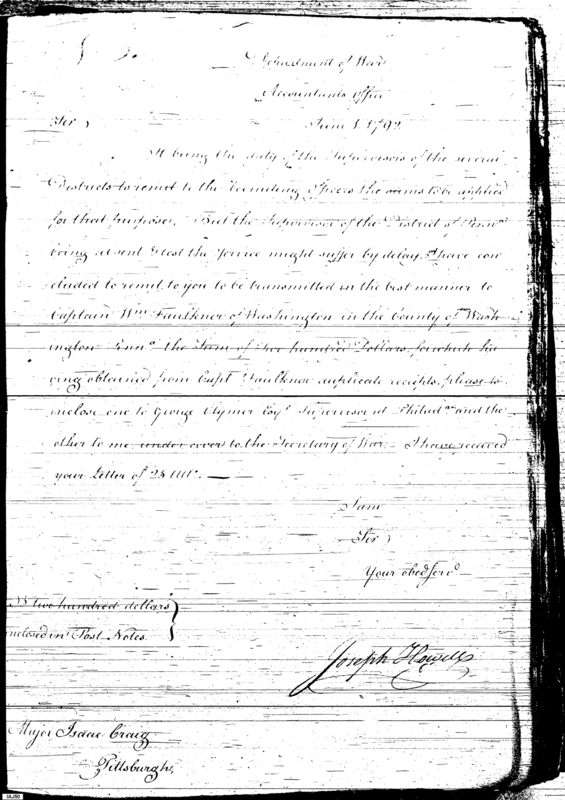 Department of War
Accountants Office
Sir June 1. 1792
It being the duty of the Supervisors of the several
Districts to remit to the Recruiting Officers the sums to be applied
for that purpose. But the Supervisor of the District of Pennª
being absent & lest the service might suffer by delay, I have con
cluded to remit to you to be transmitted in the best manner to
Captain Wm Faulkner of Washington in the County of Wash
ington Pennª the Sum of Two hundred Dollars, for which ha
ving obtained from Capt Faulkner duplicate receipts, please to
inclose one to George Clymer Esqr Supervisor at Philadª and the
other to me under cover to the Secretary of War. I have received
your Letter of 25 Ulto.
I am
Sir
Your obed Servt
NB two hundred dollars
inclosed in Post Notes.
Joseph Howell
Major Isaac Craig
Pittsburgh,